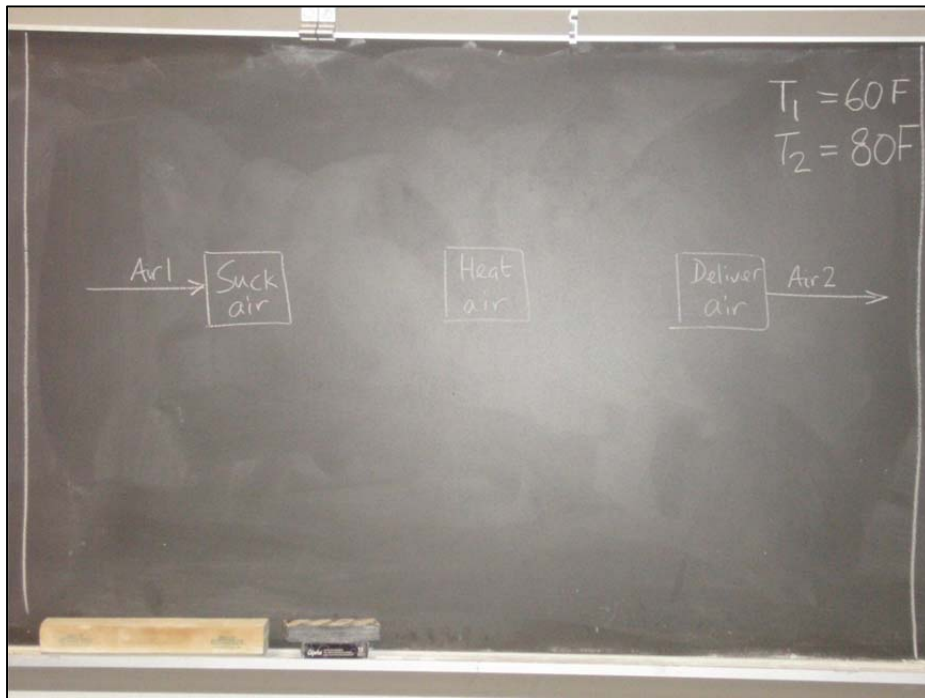 T₁ = 60F
T₂ = 80F
Air1
Suck
air
Heat
air
Deliver
air
Air2